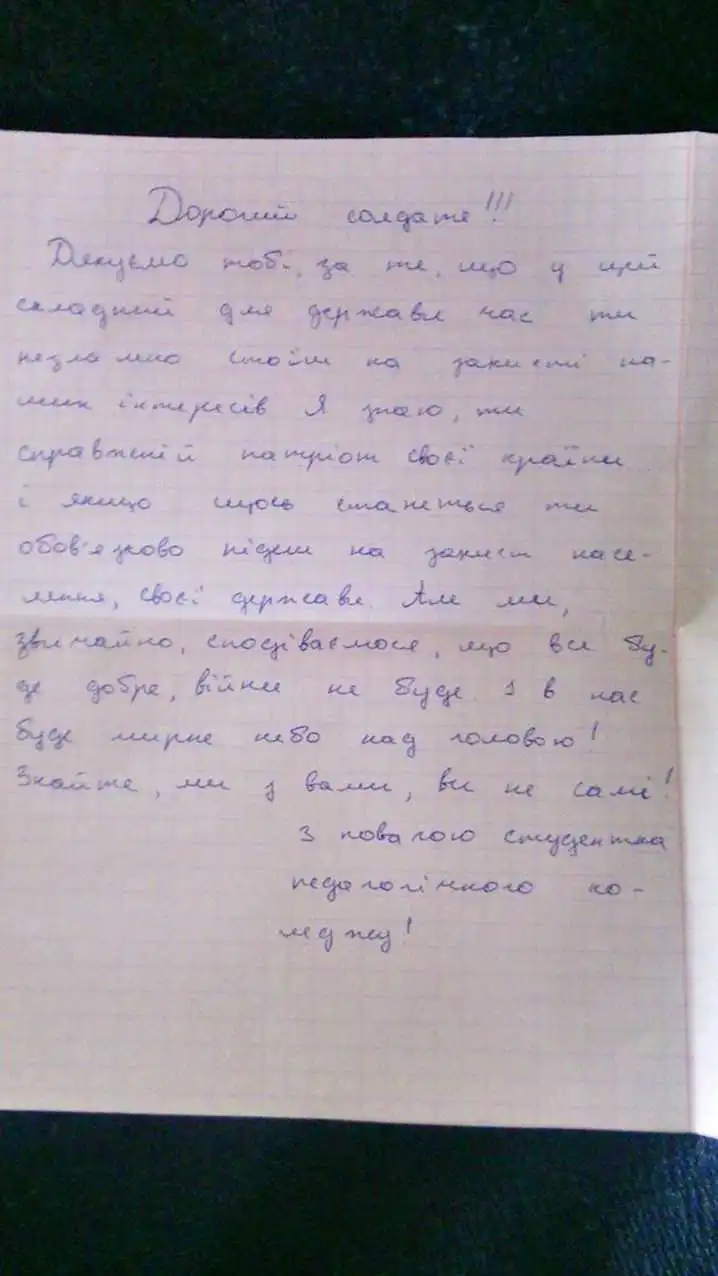 Дорогий солдате!!!
Дякуємо тобі, за те, що у цей
складний для держави час ти
незламно стоїш на захисті на-
ших інтересів Я знаю, ти
справжній патріот своєї країни
і якщо щось станеться ти
обов'язково підеш на захист насе-
лення, своєї держави. Але ми,
звичайно, сподіваємося, що все бу-
де добре, війни не буде. І в нас
буде мирне небо над головою!
Знайте, ми з вами, ви не самі!
З повагою студентка
педагогічного ко-
леджу!